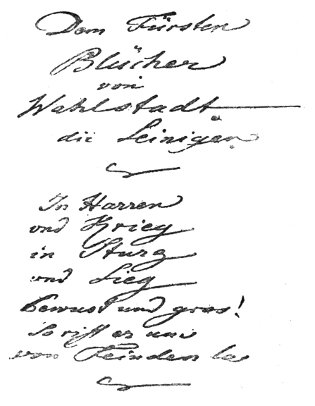 Dem Fürsten
Blücher
von
Wahlstadt
die Seinigen
In Harren
und Krieg
in Sturz
und Sieg
Bewust und gros!
So riß er uns
von Feinden los